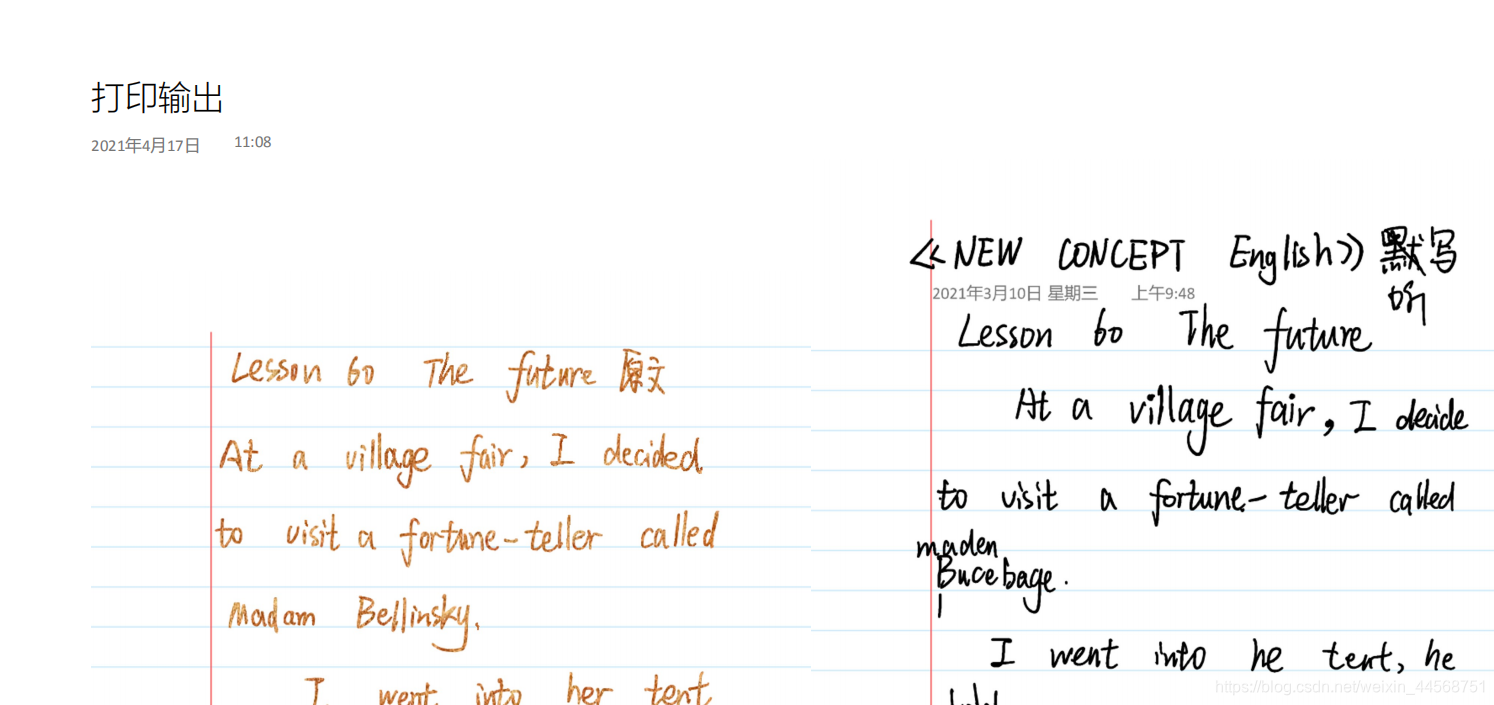 打印输出
2021年4月17日 11:08
Lesson 60 The future 原文
At a village fair, I decided
to visit a fortune-teller called
Madam Bellinsky.
I went into her tent
《NEW CONCEPT English》默写
听
2021年3月10日 星期三 上午9:48
Lesson 60 The future
At a village fair, I decide
to visit a fortune-teller called
maden
Bucebage.
I went into he tent, he
https://blog.csdn.net/weixin_44568751